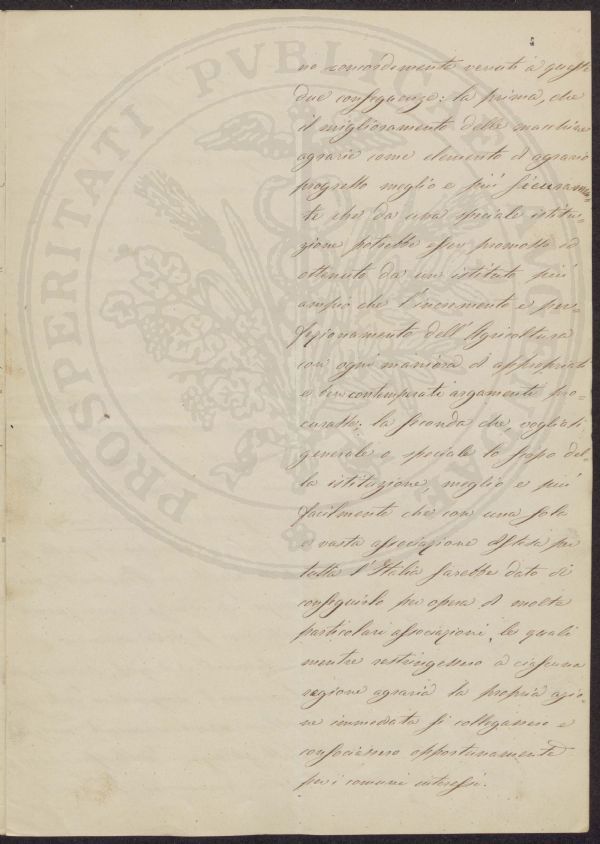 no concordemente venuti a queste
due conseguenze: la prima, che
il miglioramento delle macchine
agrarie come elemento d'agrario
progresso meglio e più sicuramen=
te che da una speciale istitu=
zione potrebbe esser promosso ed
ottenuto da un istituto più
ampio che l'incremento e per=
fezionamento dell'Agricoltura
con ogni maniera d'appropriati
e ben contemperati argomenti pro=
curasse; la seconda che, vogliasi
generale o speciale lo scopo del=
la istituzione, meglio e più
facilmente che con una sola
e vasta associazione estesa per
tutta l'Italia sarebbe dato di
conseguirlo per opera di molte
particolari associazioni, le quali
mentre restringessero a ciascuna
regione agraria la propria azio=
ne immediata si collegassero e
consociassero opportunamente
per i comuni interessi.
PROSPERITATI PVBLICAE